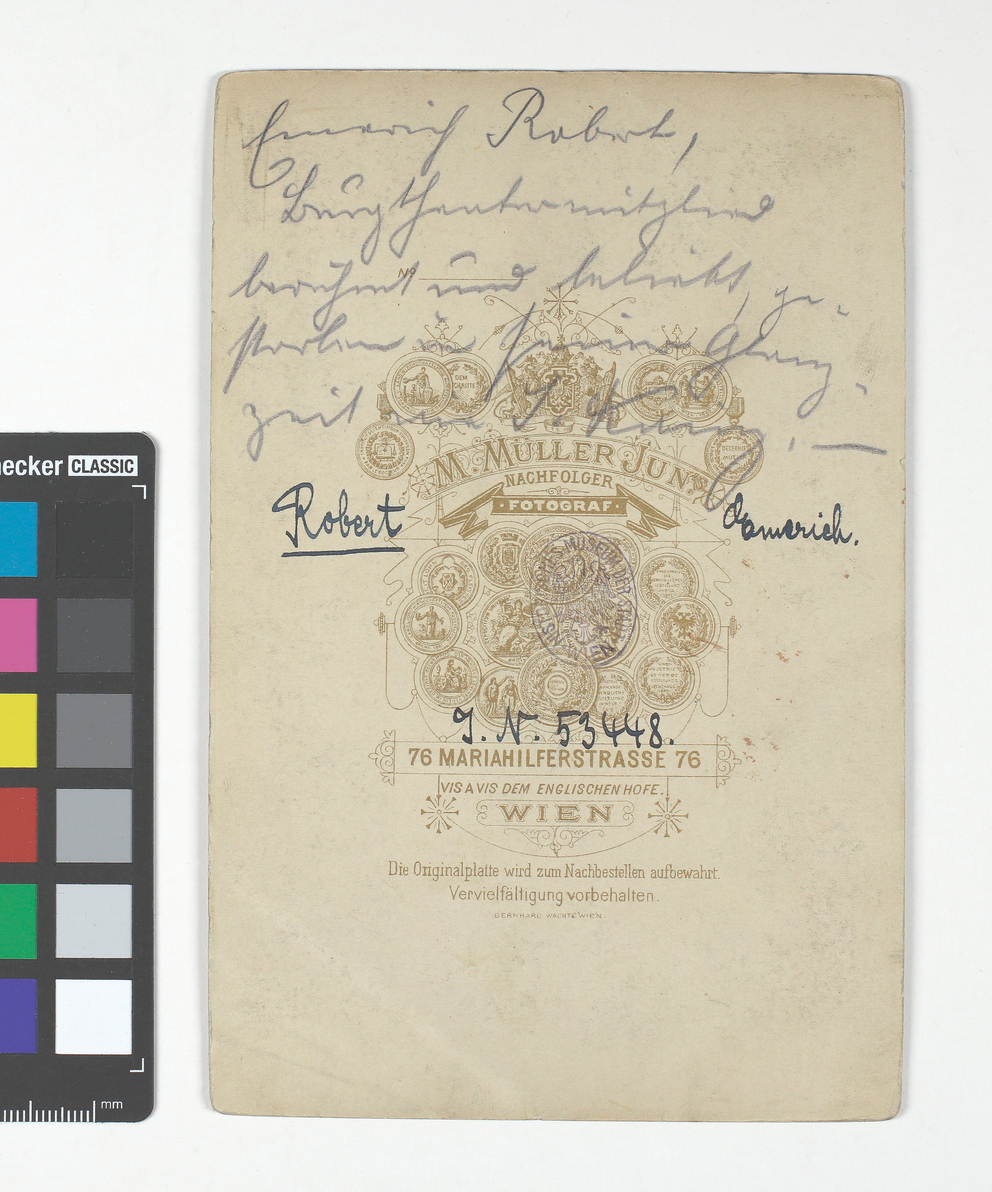 Emerich Robert,
Burgtheatermitglied
berühmt und beliebt, ge-
storben in seiner Glanz-
zeit
Nº
DEM
M. MÜLLER JUNS
NACHFOLGER
· FOTOGRAF ·
Robert Emerich.
MUSEUM DER STADT
J. N. 53448.
76 MARIAHILFERSTRASSE 76
VIS A VIS DEM ENGLISCHEN HOFE.
WIEN
Die Originalplatte wird zum Nachbestellen aufbewahrt.
Vervielfältigung vorbehalten.
BERNHARD WACHTL WIEN.
ecker CLASSIC
mm